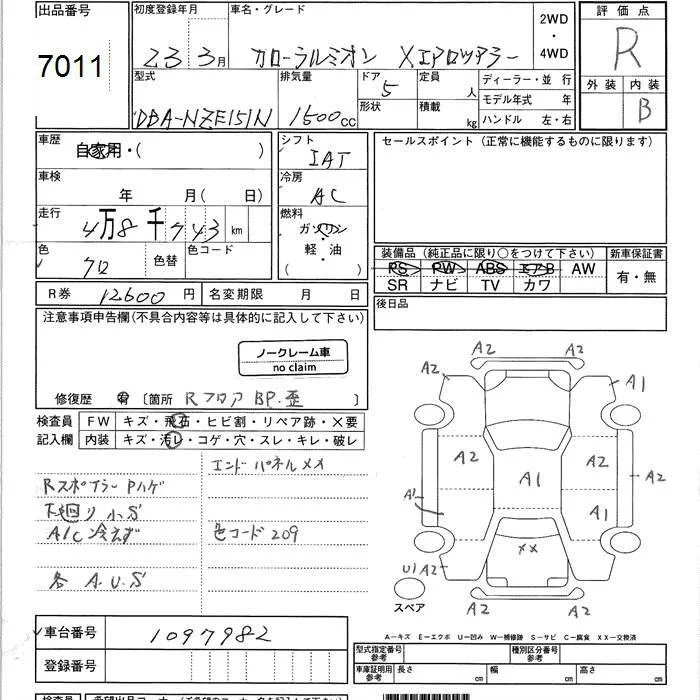 出品番号
7011
初度登録年月
23 3月
車名・グレード
カローラルミオン Xエアロツアラー
2WD
・
4WD
評価点
R
外装 内装
B
型式
DBA-NZE151N
排気量
1500cc
ドア
5
形状
定員 人
積載 kg
ディーラー・並 行
モデル年式 年
ハンドル 左・右
車歴
自家用・( )
車検
年 月( 日)
走行
4万8千743 km
色
クロ
色替
色コード
シフト
IAT
冷房
AC
燃料
ガソリン
軽・油
( )
セールスポイント (正常に機能するものに限ります)
装備品 (純正品に限り○をつけて下さい)
新車保証書
PS PW ABS エアB AW
SR ナビ TV カワ
有・無
後日品
R券 12600 円
名変期限 月 日
注意事項申告欄(不具合内容等は具体的に記入して下さい)
ノークレーム車
no claim
修復歴 有 〔箇所 Rフロア BP.歪 〕
検査員
記入欄
FW キズ・飛石・ヒビ割・リペア跡・×要
内装 キズ・汚レ・コゲ・穴・スレ・キレ・破レ
エンドパネルメメ
Rスポイラー Pハゲ
下廻り小S
A/C冷えず
色コード209
各 A.U.S
A2 A2
A2 A1
A2 A1 A2 A2
A1 A1
U1 A2 ×× A2
A2 A2
スペア
A-キズ E-エクボ U-凹み W-補修跡 S-サビ C-腐食 XX-交換済
車台番号
1097982
登録番号
型式指定番号
参考
種別区分番号
参考
車庫証明用
参考
長さ cm 幅 cm 高さ cm